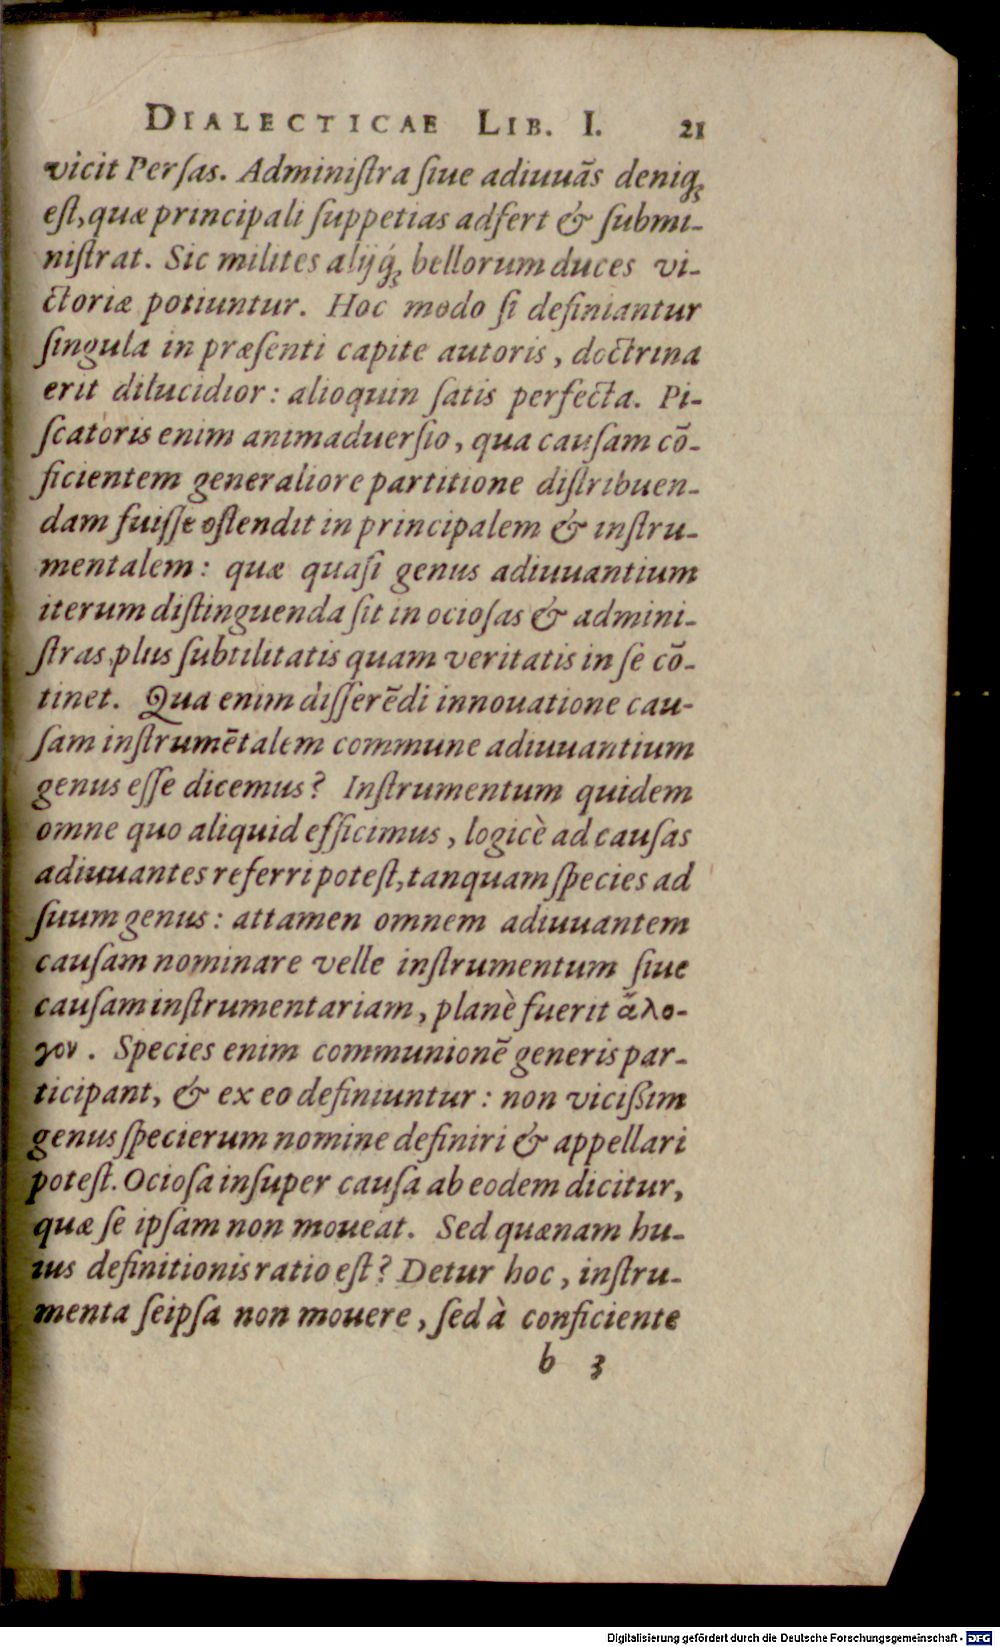 DIALECTICAE LIB. I. 21
vicit Perſas. Adminiſtra ſiue adiuuãs deniq;
eſt, quæ principali ſuppetias adfert & ſubmi-
niſtrat. Sic milites alijq́; bellorum duces vi-
ctoriæ potiuntur. Hoc modo ſi definiantur
ſingula in præſenti capite autoris, doctrina
erit dilucidior: alioquin ſatis perfecta. Pi-
ſcatoris enim animaduerſio, qua cauſam cõ-
ficientem generaliore partitione diſtribuen-
dam fuiſſe oſtendit in principalem & inſtru-
mentalem: quæ quaſi genus adiuuantium
iterum diſtinguenda ſit in ocioſas & admini-
ſtras, plus ſubtilitatis quam veritatis in ſe cõ-
tinet. Qua enim diſſerẽdi innouatione cau-
ſam inſtrumẽtalem commune adiuuantium
genus eſſe dicemus? Inſtrumentum quidem
omne quo aliquid efficimus, logicè ad cauſas
adiuuantes referri poteſt, tanquam ſpecies ad
ſuum genus: attamen omnem adiuuantem
cauſam nominare velle inſtrumentum ſiue
cauſam inſtrumentariam, planè fuerit ἄλο-
γον. Species enim communionẽ generis par-
ticipant, & ex eo definiuntur: non viciſsim
genus ſpecierum nomine definiri & appellari
poteſt. Ocioſa inſuper cauſa ab eodem dicitur,
quæ ſe ipſam non moueat. Sed quænam hu-
ius definitionis ratio eſt? Detur hoc, inſtru-
menta ſeipſa non mouere, ſed à conficiente
b 3
Digitalisierung gefördert durch die Deutsche Forschungsgemeinschaft - DFG